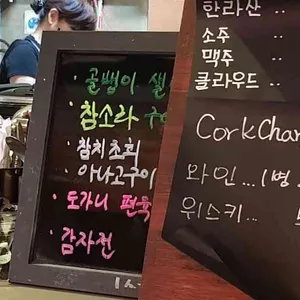 · 골뱅이
· 참소라
· 참치초회
· 아나고구이
· 도가니 편육
· 감자전
한라산 ..
소주 ..
맥주 ..
클라우드 ..
Cork
와인...(병
위스키...